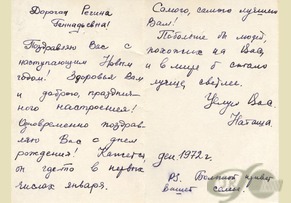 Дорогая Регина
Геннадьевна!
Поздравляю Вас с
наступающим Новым
годом! Здоровья Вам
и доброго, празднич-
ного настроения!
Одновременно поздрав-
ляю Вас с днем
рождения! Кажется,
он где-то в первых
числах января.
Самого, самого лучшего
Вам!
Побольше бы людей,
похожих на Вас,
и в мире б стало
лучше, светлее.
Целую Вас.
Наташа.
дек 1972 г.
PS. Большой привет
вашей семье.